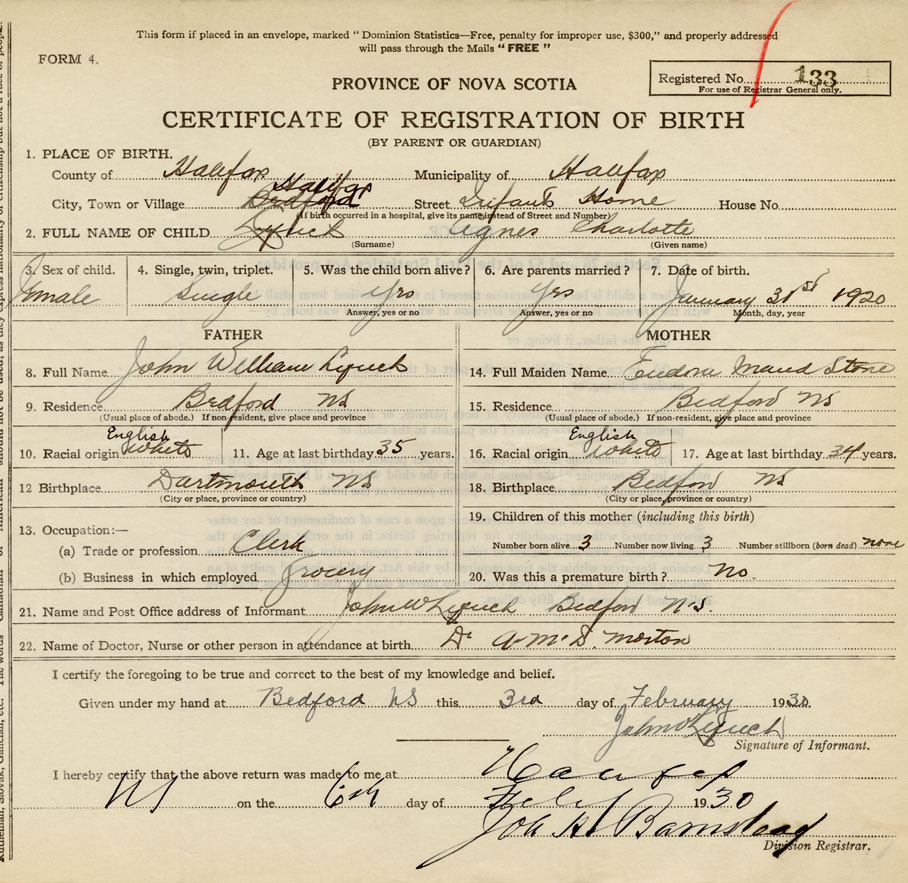 This form if placed in an envelope, marked "Dominion Statistics—Free, penalty for improper use, $300," and properly addressed
will pass through the Mails "FREE"
FORM 4.
PROVINCE OF NOVA SCOTIA
Registered No. 133
For use of Registrar General only.
CERTIFICATE OF REGISTRATION OF BIRTH
(BY PARENT OR GUARDIAN)
1. PLACE OF BIRTH.
County of Halifax Municipality of Halifax
Halifax
City, Town or Village Bedford Street Infants Home House No.
(If birth occurred in a hospital, give its name instead of Street and Number)
2. FULL NAME OF CHILD Lynch Agnes Charlotte
(Surname) (Given name)
3. Sex of child. 4. Single, twin, triplet. 5. Was the child born alive? 6. Are parents married? 7. Date of birth.
Female Single Yes Yes January 31st 1920
Answer, yes or no Answer, yes or no Month, day, year
FATHER MOTHER
8. Full Name John William Lynch 14. Full Maiden Name Eudora Maud Stone
9. Residence Bedford NS 15. Residence Bedford NS
(Usual place of abode.) If non-resident, give place and province (Usual place of abode.) If non-resident, give place and province
English English
10. Racial origin White 11. Age at last birthday 35 years. 16. Racial origin White 17. Age at last birthday 34 years.
12 Birthplace Dartmouth NS 18. Birthplace Bedford NS
(City or place, province or country) (City or place, province or country)
13. Occupation:— 19. Children of this mother (including this birth)
(a) Trade or profession Clerk Number born alive 3 Number now living 3 Number stillborn (born dead) none
(b) Business in which employed Grocery 20. Was this a premature birth? No.
21. Name and Post Office address of Informant John W Lynch Bedford N.S
22. Name of Doctor, Nurse or other person in attendance at birth Dr A. McD. Morton
I certify the foregoing to be true and correct to the best of my knowledge and belief.
Given under my hand at Bedford NS this 3rd day of February 1930
John W Lynch
Signature of Informant.
I hereby certify that the above return was made to me at Halifax
NS on the 6th day of Feby 1930
Barnstead
Division Registrar.